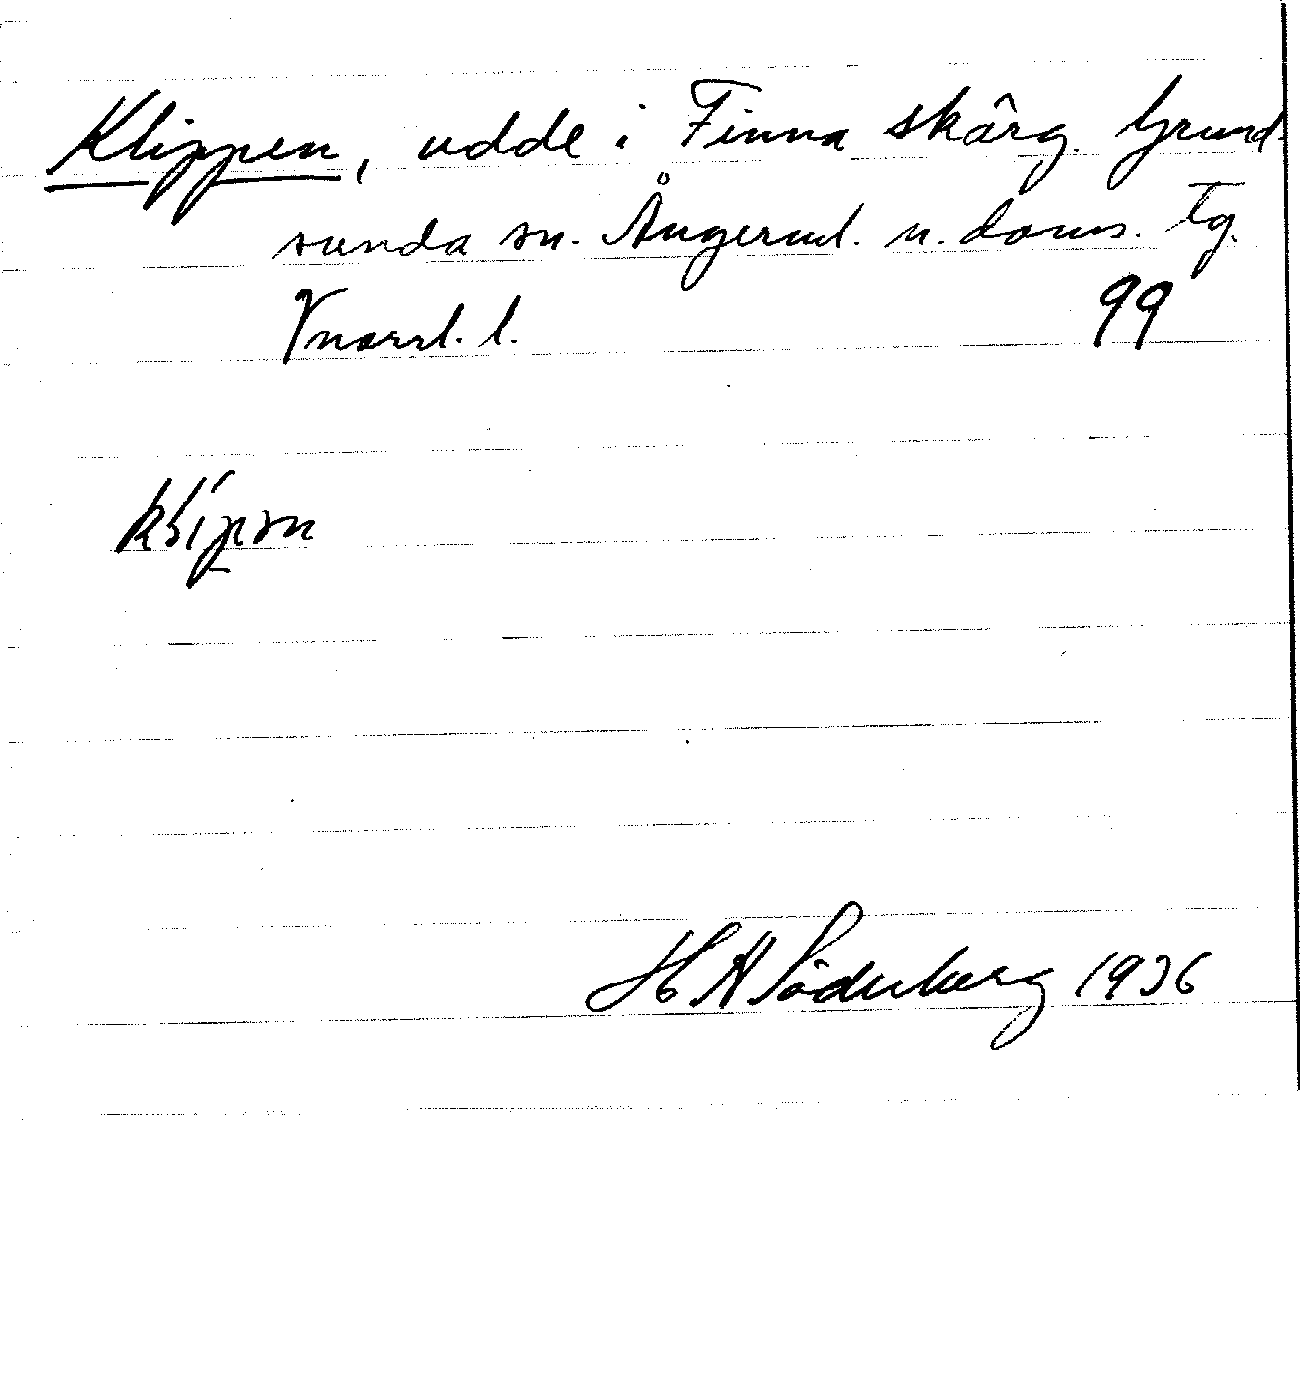 Klippen, udde i Finna skärg. Grund-
sunda sn. Ångerml. n. doms. tg.
Vnorrl. l. 99
klípən
H A Söderberg 1936